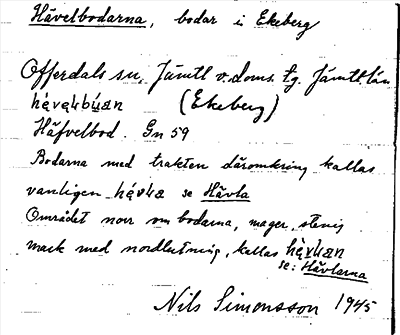 Hävelbodarna, bodar i Ekeberg
Offerdals sn, Jämtl v. doms. tg. Jämtl. län
(Ekeberg)
Häfvelbod. Gn 59
Bodarna med trakten däromkring kallas
vanligen hávla se Hävla
Området norr om bodarna, mager, stenig
mark med nordlutning, kallas
se: Hävlarna
Nils Simonsson 1945